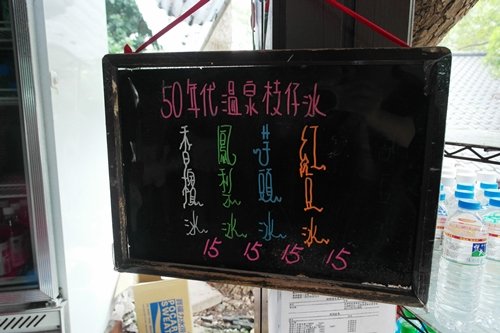 50年代溫泉枝仔冰
香檳冰
鳳梨冰
芋頭冰
紅豆冰
15 15 15 15
POCARI
SWEAT